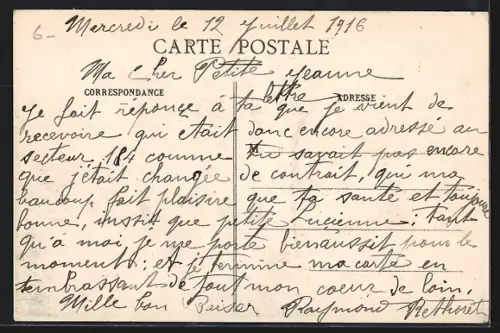 6- Mercredi le 12 Juillet 1916
CARTE POSTALE
Ma Cher Petite Jeanne
CORRESPONDANCE
ADRESSE
Je fait réponçe à ta lettre que je vient de
recevoire qui était donc encore adressé au
secteur 184 comme tu savait pas encore
que j'était changée de contrait, qui m'a
beaucoup fait plaisire que ta santé et toujours
bonne, inssit que petite Lucienne; tant
qu'à moi, je me porte bienaussit pour le
moment; et je termine ma carte en
t'embrassant de tout mon coeur de loin.
Mille bon Beiser Raymond